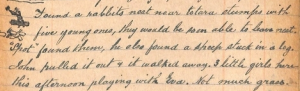 Found a rabbits nest near totara stumps with
five young ones, they would be soon able to leave nest.
"Spot" found them, he also found a sheep stuck in a log.
John pulled it out & it walked away. 3 little girls here
this afternoon playing with Eva. Not much grass.